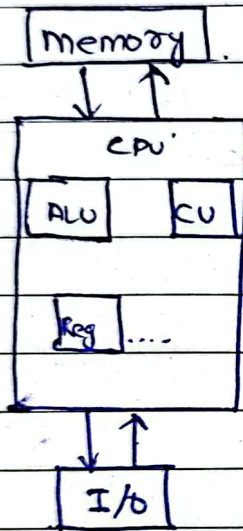 memory
CPU
ALU CU
Reg ....
I/O